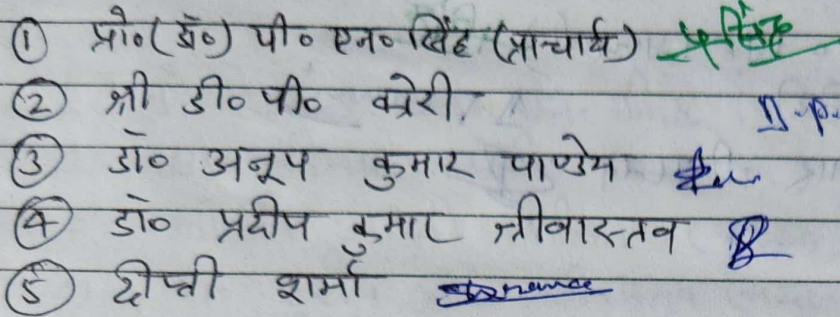 ① प्रो०(डॉ०) पी० एन० सिंह (प्राचार्य)
② श्री डी० पी० कोरी, D.P.
③ डॉ० अनूप कुमार पाण्डेय
④ डॉ० प्रदीप कुमार श्रीवास्तव
⑤ दीप्ती शर्मा